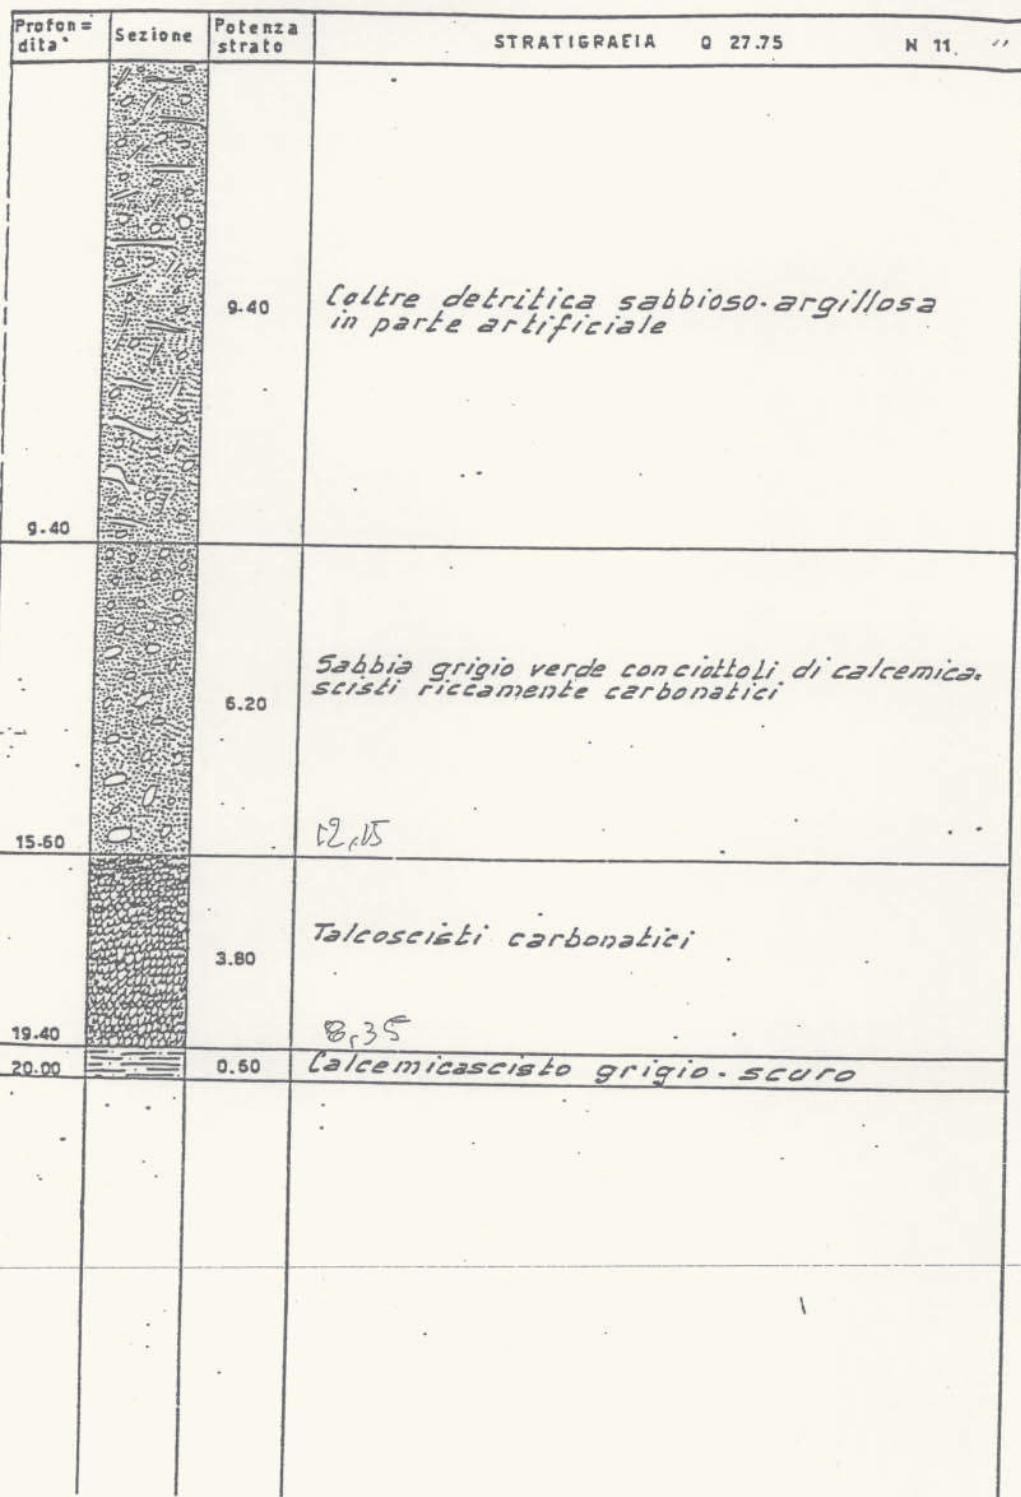 Profon= dita` Sezione Potenza strato STRATIGRAFIA Q 27.75 N 11
9.40 Coltre detritica sabbioso-argillosa
in parte artificiale
9.40
6.20 Sabbia grigio verde con ciottoli di calcemica-
scisti riccamente carbonatici
12,15
15.60
3.80 Talcoscisti carbonatici
8,35
19.40
20.00 0.60 Calcemicascisto grigio-scuro